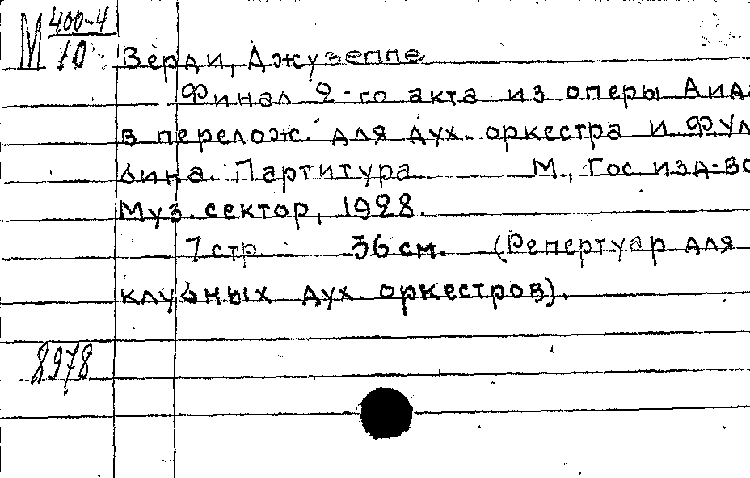 М 400-4
10
Зерди, Джузеппе
Финал 2-го акта из оперы Аида
в перелож. для дух. оркестра и Фул
бина. Партитура М., Гос. изд-во
Муз. сектор, 1928.
7 стр. 36 см. (Репертуар для
клубных дух. оркестров).
8978